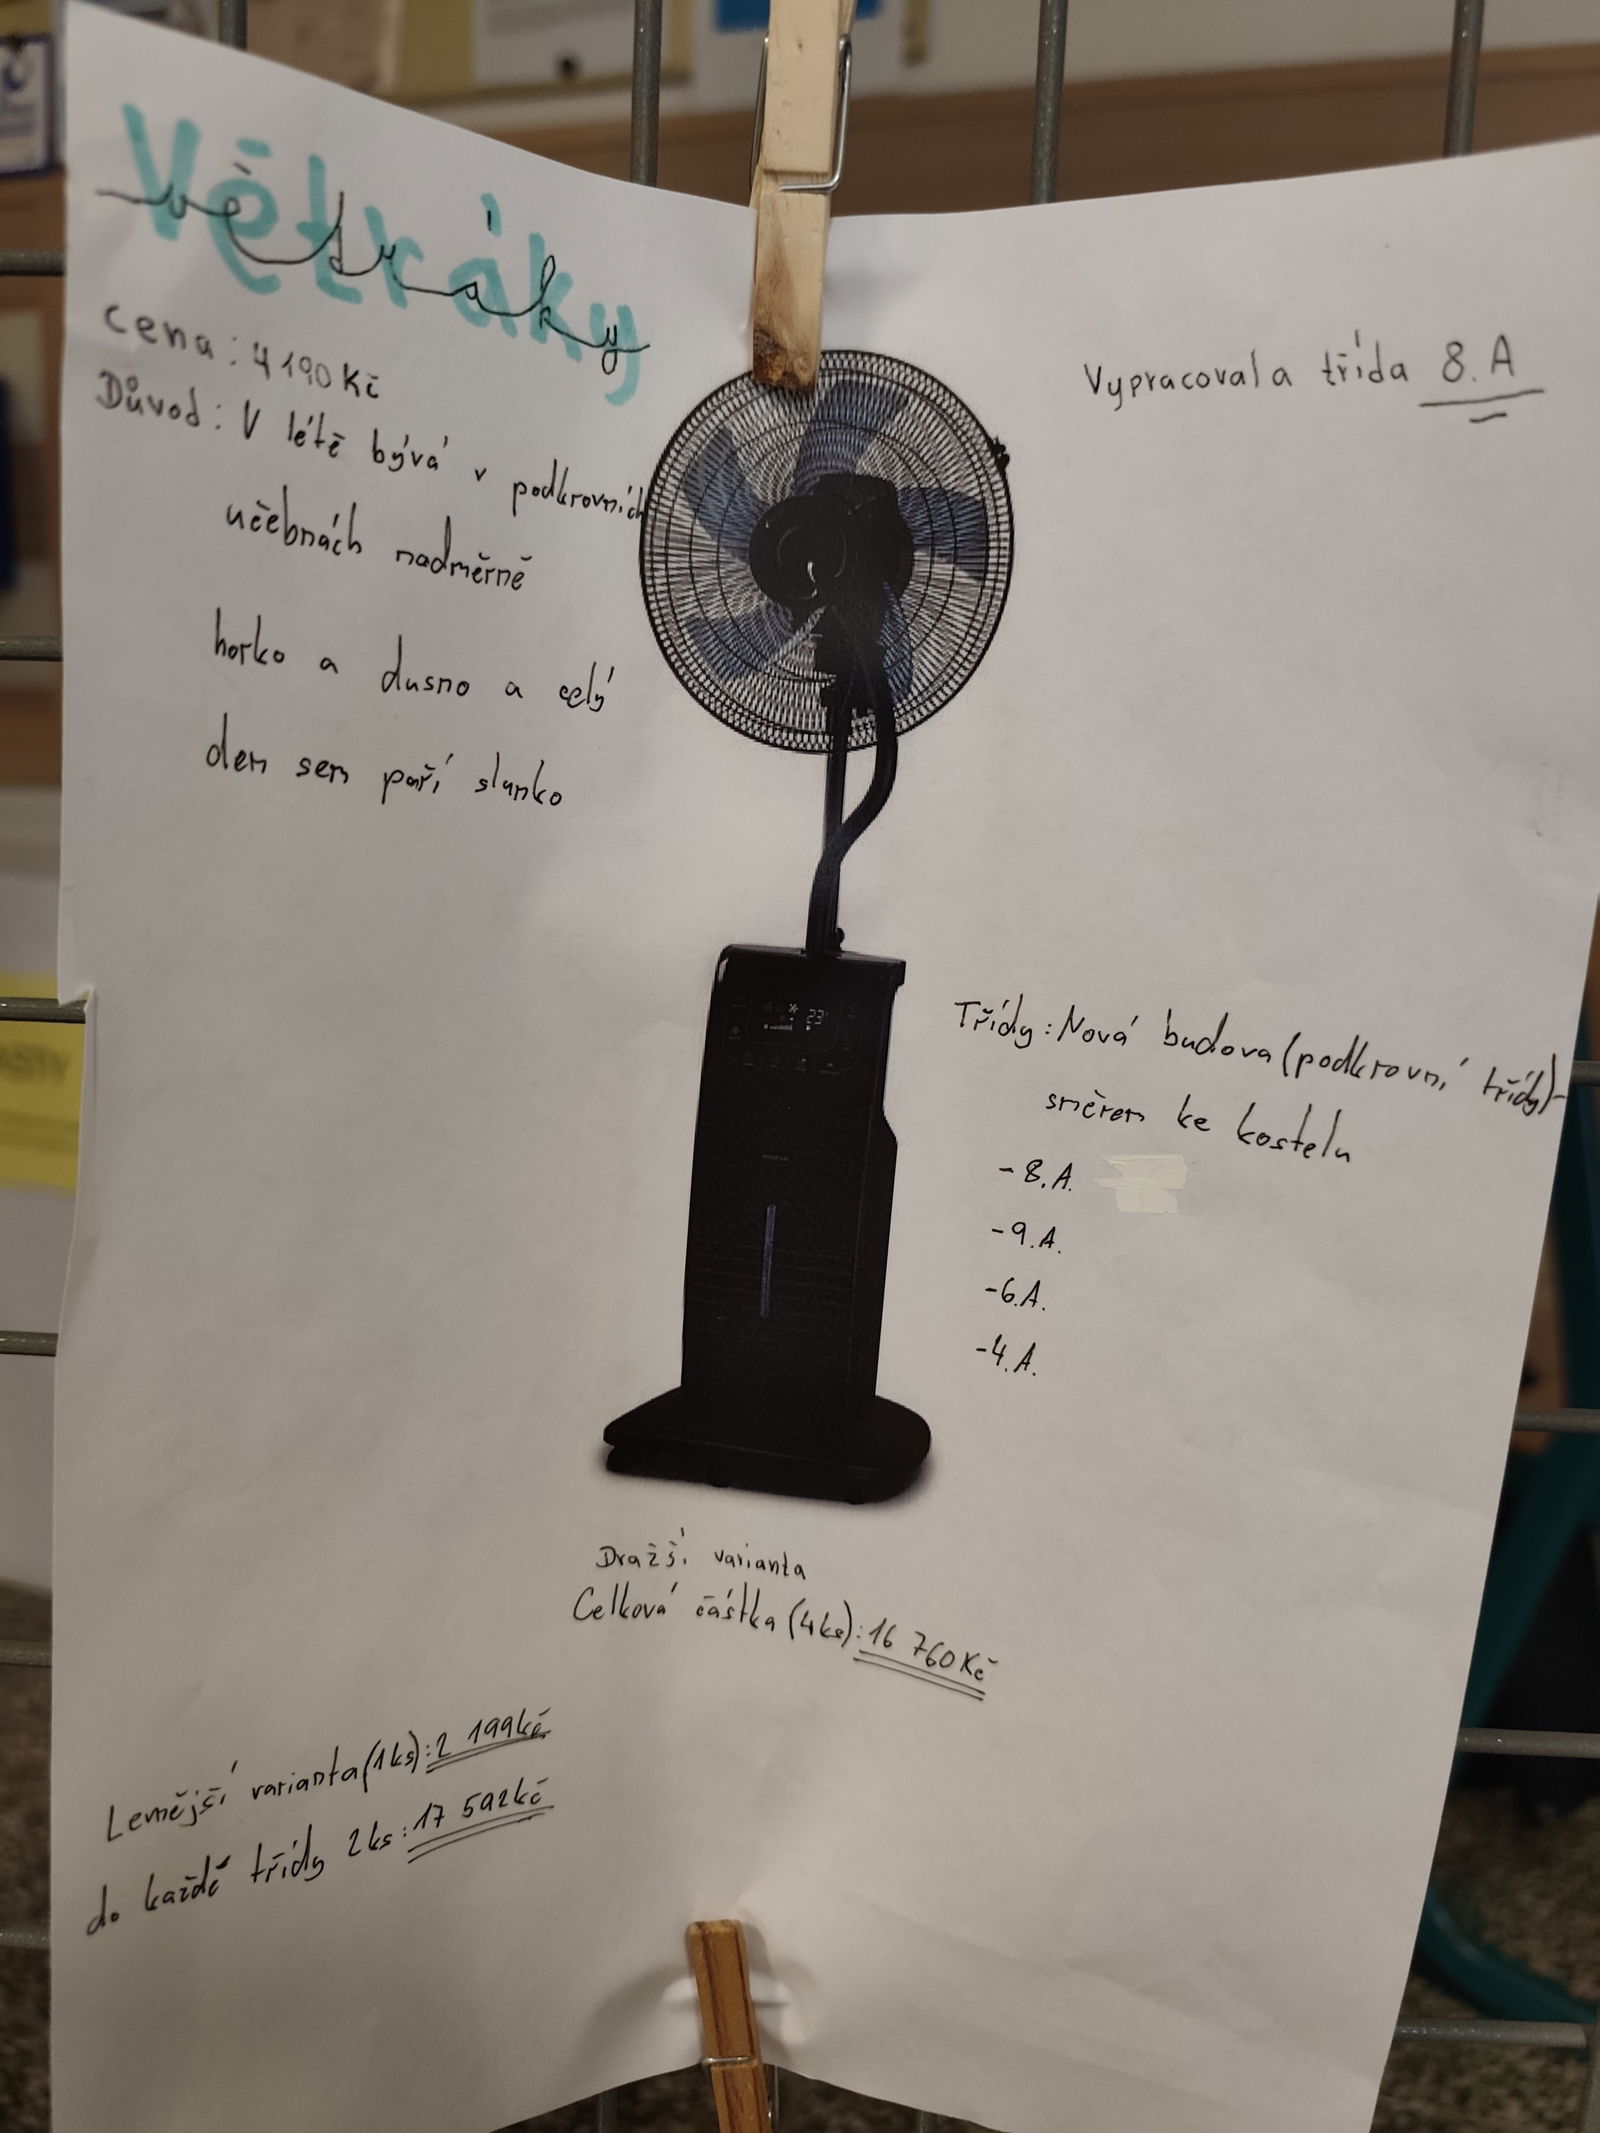 Větráky
větráky
cena: 4190 Kč
Důvod: V létě bývá v podkrovních
učebnách nadměrně
horko a dusno a celý
den sem paří slunko
Vypracovala třída 8. A
23
Třídy: Nová budova (podkrovní třídy)-
směrem ke kostelu
- 8.A.
- 9.A.
- 6.A.
- 4.A.
Dražší varianta
Celková částka (4ks): 16 760 Kč
Levnější varianta (1ks): 2 199 kč
do každé třídy 2ks: 17 592 kč